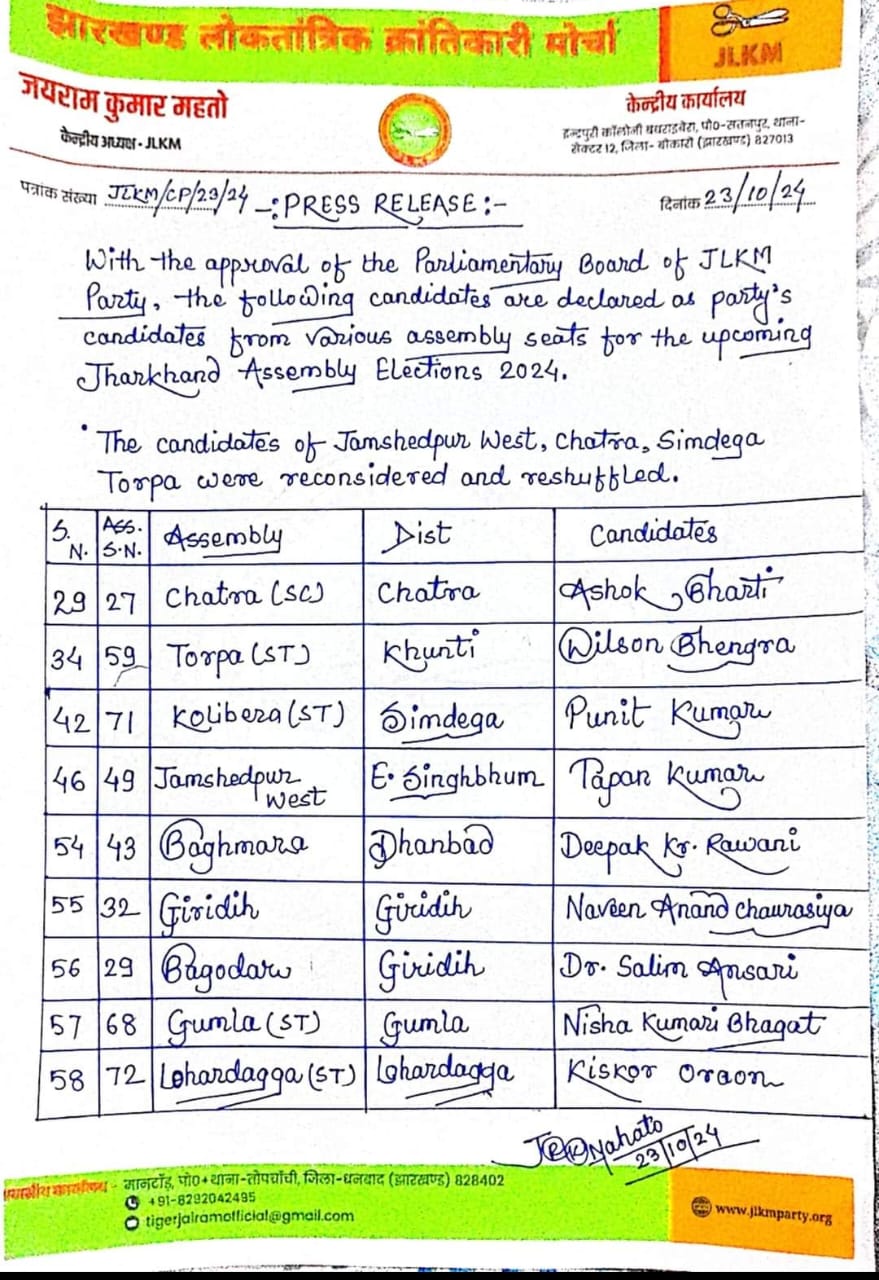 झारखण्ड लोकतांत्रिक क्रांतिकारी मोर्चा
JLKM
जयराम कुमार महतो
केन्द्रीय अध्यक्ष - JLKM
केन्द्रीय कार्यालय
इन्द्रपुरी कॉलोनी पो0-सतनपुर, थाना-
सेक्टर 12, जिला- बोकारो (झारखण्ड) 827013
पत्रांक संख्या JLKM/CP/23/24 -:PRESS RELEASE:- दिनांक 23/10/24
With the approval of the Parliamentary Board of JLKM
Party, the following candidates are declared as party's
candidates from various assembly seats for the upcoming
Jharkhand Assembly Elections 2024.
• The candidates of Jamshedpur West, Chatra, Simdega
Torpa were reconsidered and reshuffled.
S.N. Ass. S.N. Assembly Dist Candidates
29 27 Chatra (SC) Chatra Ashok Bharti
34 59 Torpa (ST) Khunti Wilson Bhengra
42 71 Kolibera (ST) Simdega Punit Kumar
46 49 Jamshedpur West E. Singhbhum Papan Kumar
54 43 Baghmara Dhanbad Deepak Kr. Rawani
55 32 Giridih Giridih Naveen Anand Chaurasiya
56 29 Bagodar Giridih Dr. Salim Ansari
57 68 Gumla (ST) Gumla Nisha Kumari Bhagat
58 72 Lohardagga (ST) Lohardagga Kiskor Oraon
Mahato
23/10/24
कार्यालय - मानटाँड़, पो0+थाना-तोपचाँची, जिला-धनबाद (झारखण्ड) 828402
+91-8292042495
tigerjairamofficial@gmail.com
www.jlkmparty.org